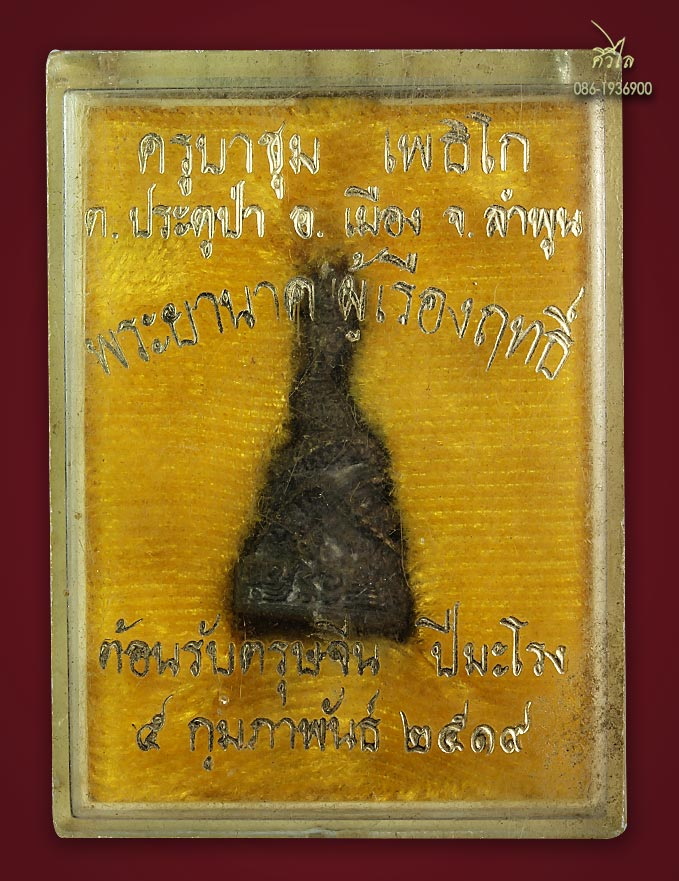 ศิวิไล
086-1936900
ครูบาชุม เพธิโก
ต. ประตูป่า อ. เมือง จ. ลำพูน
พระยานาค ผู้เรืองฤทธิ์
ต้อนรับตรุษจีน ปีมะโรง
๕ กุมภาพันธ์ ๒๕๑๙